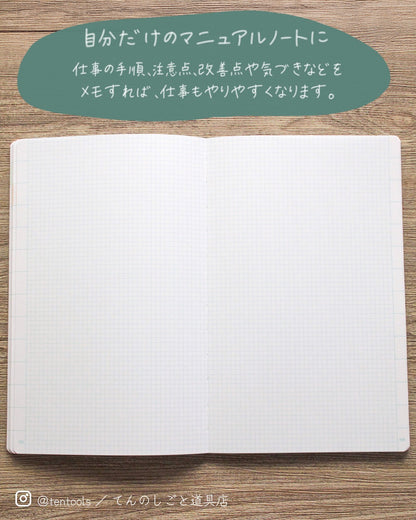 自分だけのマニュアルノートに
仕事の手順、注意点、改善点や気づきなどを
メモすれば、仕事もやりやすくなります。
@tentools / てんのしごと道具店